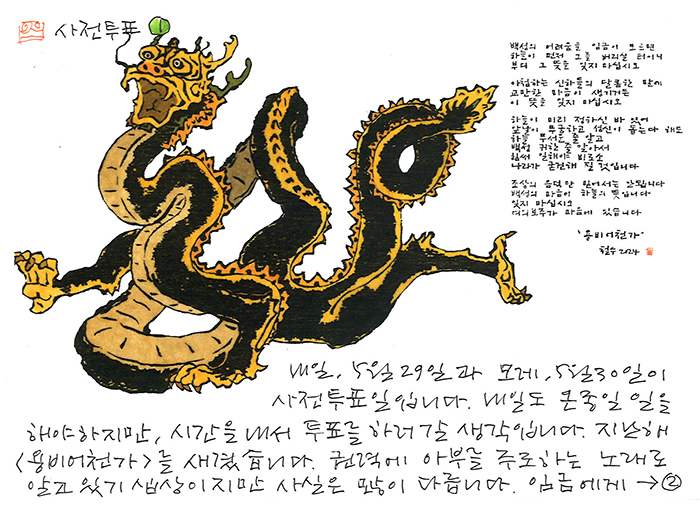 사전투표
백성의 어려움을 임금이 모르면
하늘이 먼저 그를 버리실 터이니
부디 그 뜻을 잊지 마십시오
아첨하는 신하들의 달콤한 말에
교만한 마음이 생기거든
이 뜻을 잊지 마십시오
하늘이 미리 정하신 바 있어
앞날이 무궁하고 성신이 돕는다 해도
하늘 무서운 줄 알고
백성 귀한 줄 알아서
힘써 일해야 비로소
나라가 굳건해 질 것입니다
조상의 음덕만 믿어서는 안됩니다
백성의 마음이 하늘의 뜻입니다
잊지 마십시오
여의보주가 마음에 있습니다
'용비어천가'
철수 2024
내일, 5월 29일과 모레, 5월 30일이
사전투표일입니다. 내일도 온종일 일을
해야하지만, 시간을 내서 투표를 하러갈 생각입니다. 지난해
<용비어천가>를 새겼습니다. 권력에 아부를 주로하는 노래로
알고 있기 십상이지만 사실은 많이 다릅니다. 임금에게 →②